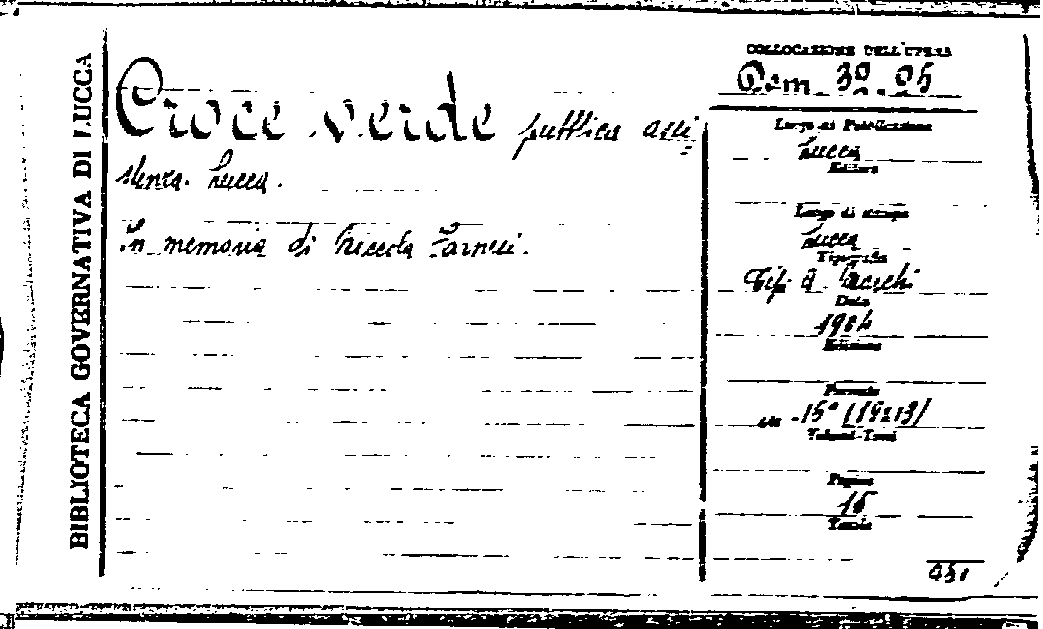 BIBLIOTECA GOVERNATIVA DI LUCCA
Croce verde pubblica assi=
stenza. Lucca.
In memoria di Niccola Farnesi.
COLLOCAZIONE DELL'OPERA
Luogo di Pubblicazione
Lucca
Editore
Luogo di stampa
Lucca
Tipografia
Tip. A.
Data
1904
Edizione
Formato
in-15° (19x13)
Volumi-Tomi
Pagine
15
Tavole